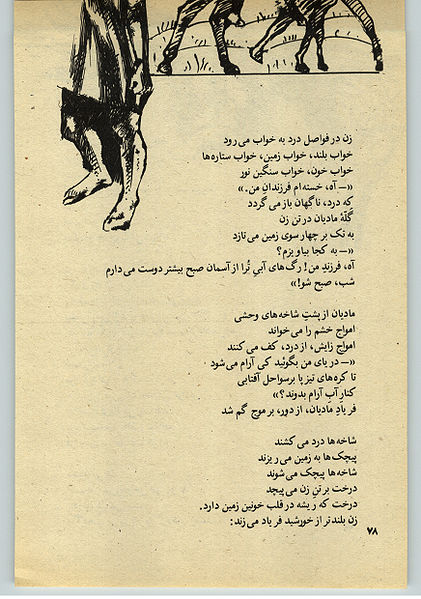 زن در فواصل درد به خواب می‌رود
خواب بلند، خواب زمین، خواب ستاره‌ها
خواب خون، خواب سنگین نور
«— آه، خسته‌ام فرزندانِ من.»
که درد، ناگهان باز می‌گردد
گلّهٔ مادیان در تن زن
به تک بر چهار سوی زمین می‌تازد
«— به کجا بیاویزم؟
آه، فرزندِ من! رگ‌های آبیِ تُرا از آسمان صبح بیشتر دوست می‌دارم
شب، صبح شو!»
مادیان از پشتِ شاخه‌های وحشی
امواج خشم را می‌خواند
امواج زایش، از درد، کف می‌کنند
«— دریای من بگوئید کی آرام می‌شود
تا کره‌های تیزپا بر سواحل آفتابی
کنار آبِ آرام بدوند؟»
فریادِ مادیان، از دور، بر موج گم شد
شاخه‌ها درد می‌کشند
پیچک‌ها به زمین می‌ریزند
شاخه‌ها پیچک می‌شوند
درخت بر تن زن می‌پیچد
درخت که ریشه در قلب خونین زمین دارد.
زن بلندتر از خورشید فریاد می‌زند:
۷۸